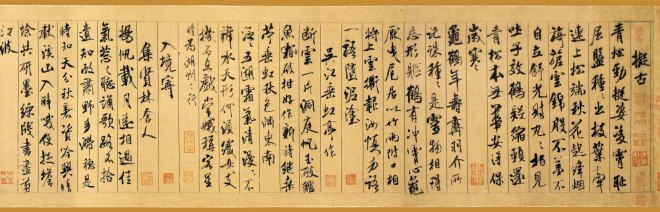 擬古
青松勁挺姿凌霄恥
屈盤種種出枝葉牽
連上松端秋花起絳烟
旖旎雲錦殷不羞不
自立舒光射丸丸柏見
吐子效鶴疑縮頸還
青松本無華安得保
歲寒
龜鶴年壽齊羽介所
託殊種種是靈物相得
忘形軀鶴有沖霄心龜
厭曳尾居以竹兩附口相
將上雲衢報汝慎勿語
一語墮泥塗
吳江垂虹亭作
斷雲一片洞庭帆玉破鱸
魚霜破柑好作新詩繼桑
苧垂虹秋色滿東南
泛泛五湖霜氣清漫漫不
辨水天形何須織女支
機石且戲常娥稱客星
時為湖州之行
入境寄
集賢林舍人
揚帆載月遠相過佳
氣蔥蔥聽誦歌路不拾
遺知政肅野多滯穗是
時和天分秋暑資吟興晴
獻溪山入醉哦便捉蟾
蜍共研墨綵牋書盡剪
江波